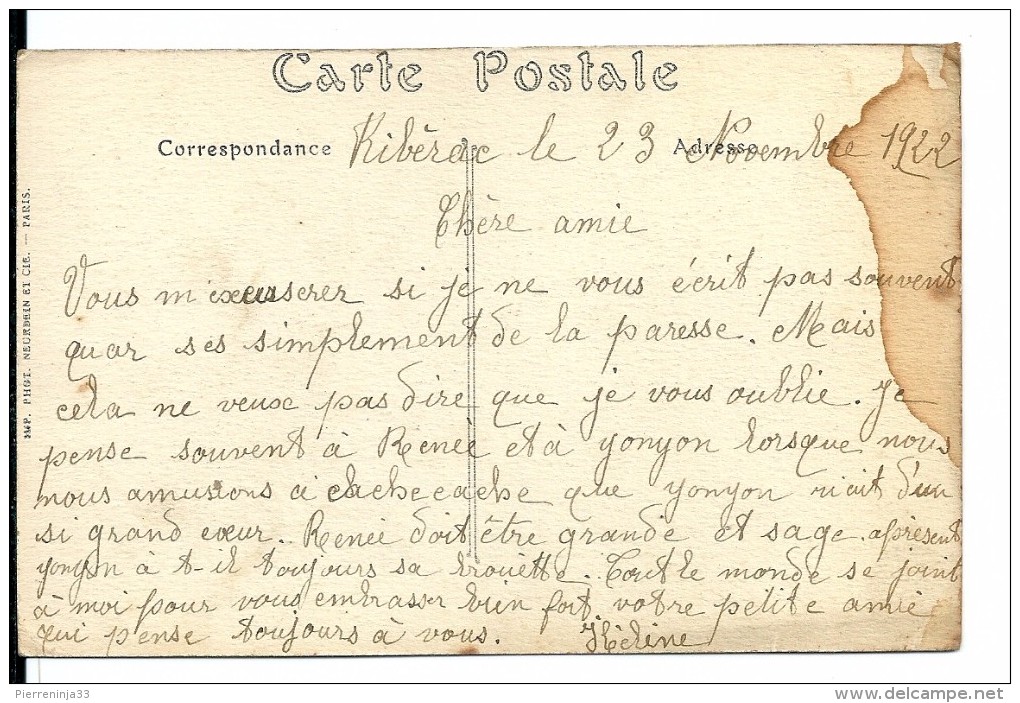 Carte Postale
Correspondance
Adresse
Ribérac le 23 Novembre 1922
Chère amie
Vous m'excuserez si je ne vous écrit pas souvent
quar ses simplement de la paresse. Mais
cela ne veux pas dire que je vous oublie. Je
pense souvent à Renée et à yonyon lorsque nous
nous amusions à cache cache que yonyon riait d'un
si grand cœur. Renée doit être grande et sage. apresent
yonyon à t-il toujours sa brouette. Tout le monde se joint
à moi pour vous embrasser bien fort, votre petite amie
qui pense toujours à vous. Hélène
IMP. PHOT. NEURDEIN ET CIE. — PARIS.
Pierreninja33
www.delcampe.net